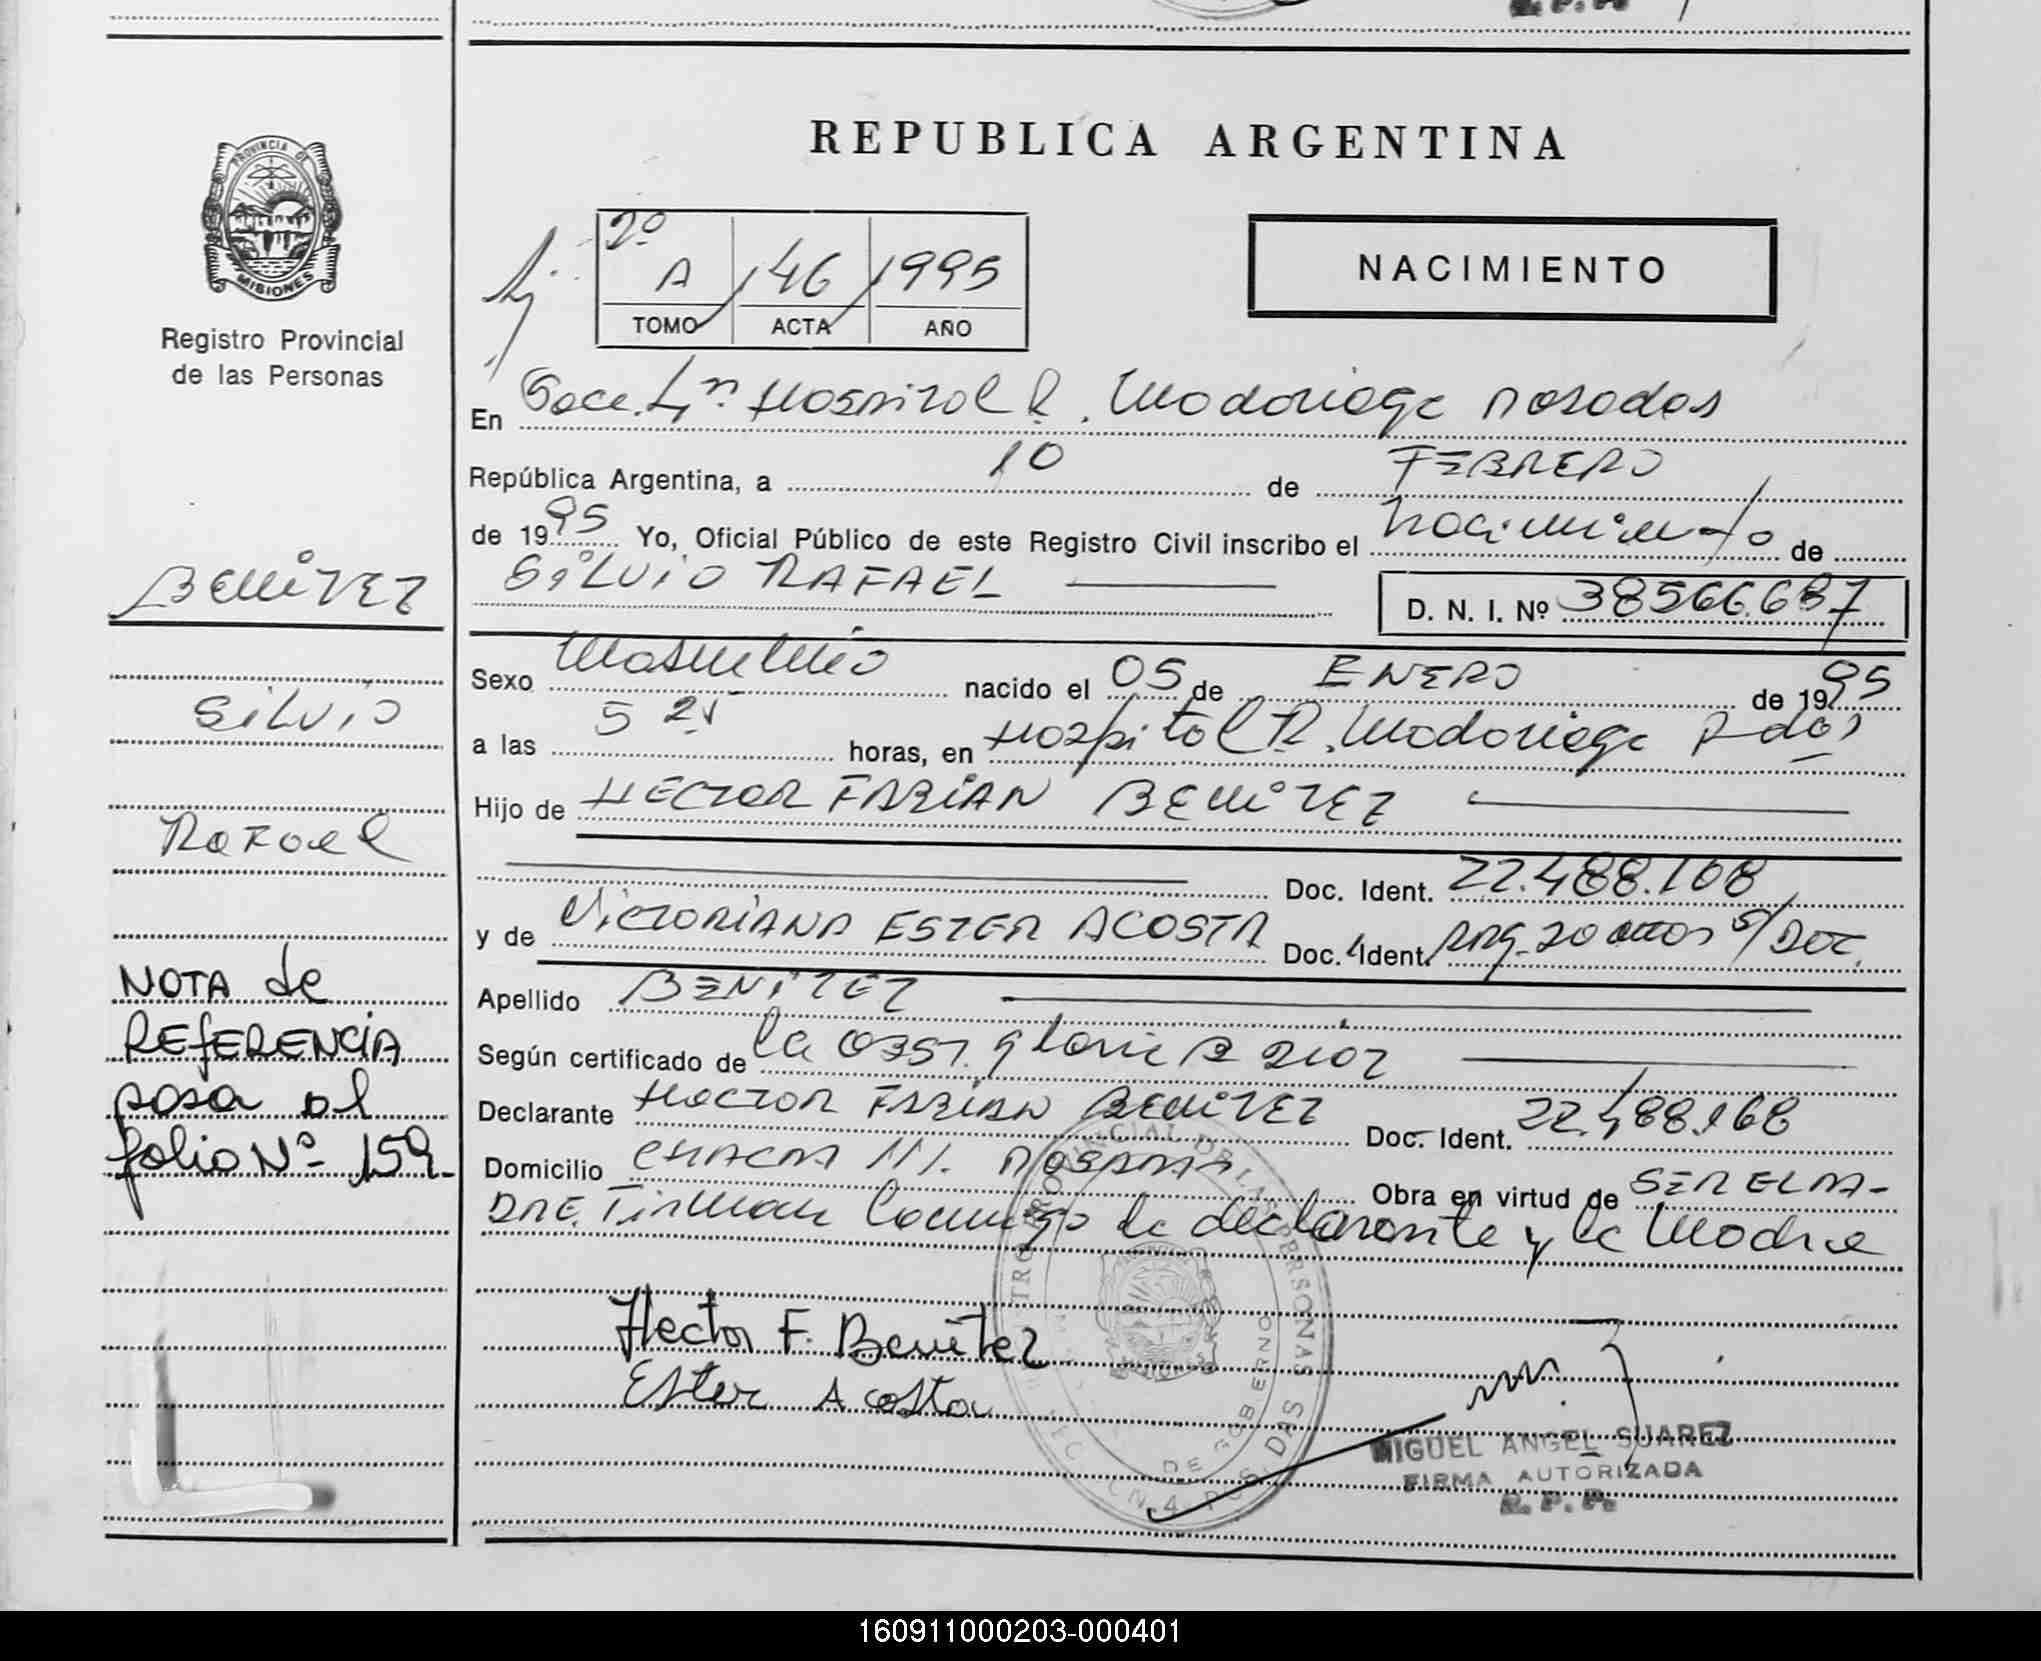 REPUBLICA ARGENTINA
PROVINCIA DE
MISIONES
Registro Provincial
de las Personas
2º
A 146 1995
TOMO ACTA AÑO
NACIMIENTO
En Secc. Hospital R. Madariaga Posadas
República Argentina, a 10 de FEBRERO
de 1995 Yo, Oficial Público de este Registro Civil inscribo el Nacimiento de
SILVIO RAFAEL
D. N. I. Nº 38566.687
BENITEZ
Silvio
Rafael
NOTA de
REFERENCIA
pasa al
folio Nº 159
Sexo Masculino nacido el 05 de ENERO de 1995
a las 5 horas, en Hospital R. Madariaga Pdas
Hijo de HECTOR FABIAN BENITEZ
Doc. Ident. 22.488.168
y de VICTORIANA ESTER ACOSTA Doc. Ident. ARG. 20 años S/DOC.
Apellido BENITEZ
Según certificado de la obst. gloria Diaz
Declarante HECTOR FABIAN BENITEZ Doc. Ident. 22.488.168
Domicilio CHACRA 111. POSADAS Obra en virtud de SER EL PA-
DRE. Firman Conmigo la declarante y la Madre
Hector F. Benitez
Ester Acosta
MIGUEL ANGEL SUAREZ
FIRMA AUTORIZADA
R. P. P.
160911000203-000401